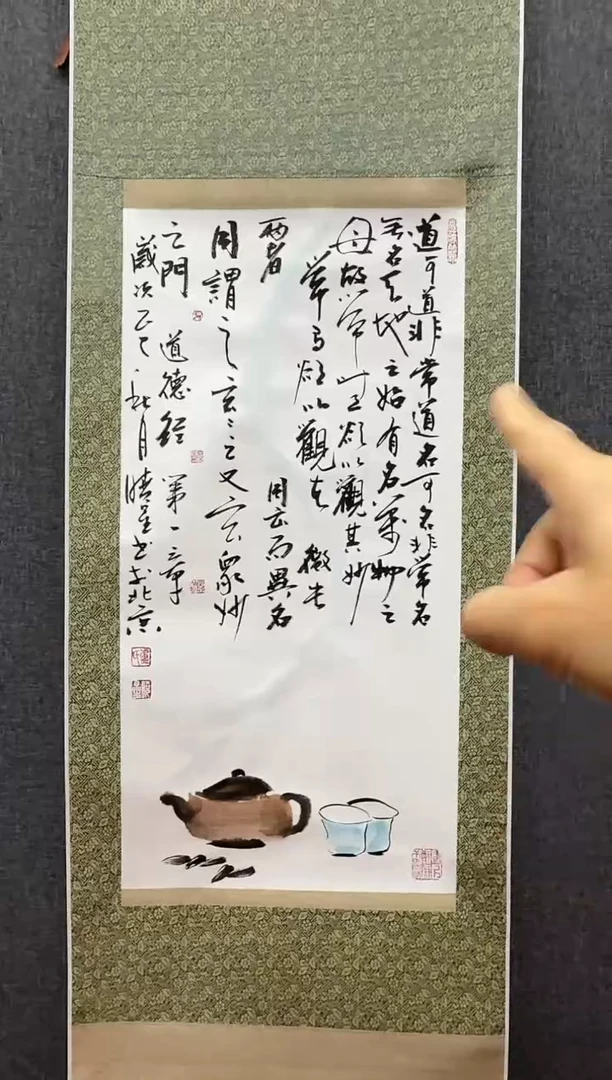 道可道非常道名可名非常名
无名天地之始有名萬物之
母故常無欲以觀其妙
常有欲以觀其徼此
兩者 同出而異名
同謂之玄玄之又玄眾妙
之門 道德經 第一章
歲次乙巳秋月 书於北京